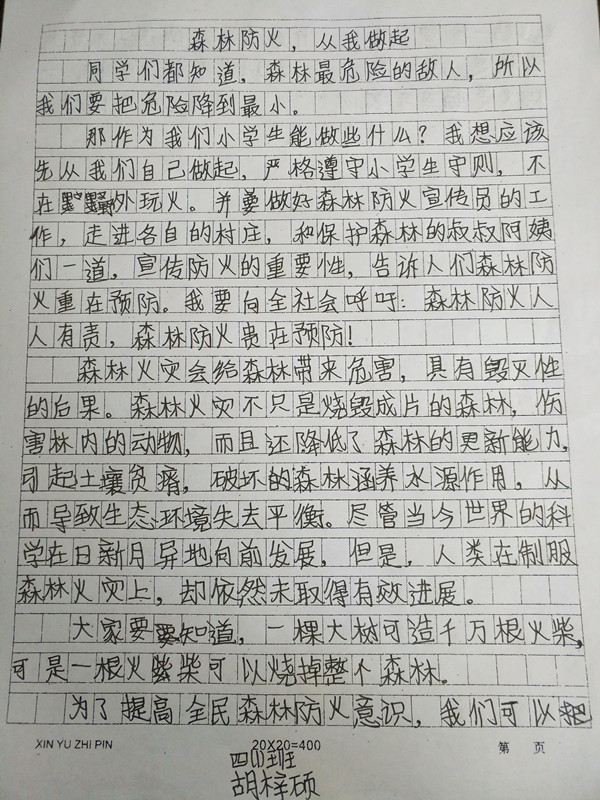 森林防火，从我做起
同学们都知道，森林最危险的敌人，所以
我们要把危险降到最小。
那作为我们小学生能做些什么？我想应该
先从我们自己做起，严格遵守小学生守则，不
在野外玩火。并要做好森林防火宣传员的工
作，走进各自的村庄，和保护森林的叔叔阿姨
们一道，宣传防火的重要性，告诉人们森林防
火重在预防。我要向全社会呼吁：森林防火人
人有责，森林防火贵在预防！
森林火灾会给森林带来危害，具有毁灭性
的后果。森林火灾不只是烧毁成片的森林，伤
害林内的动物，而且还降低了森林的更新能力，
引起土壤贫瘠，破坏的森林涵养水源作用，从
而导致生态环境失去平衡。尽管当今世界的科
学在日新月异地向前发展，但是，人类在制服
森林火灾上，却依然未取得有效进展。
大家要知道，一棵大树可造千万根火柴，
可是一根火柴可以烧掉整个森林。
为了提高全民森林防火意识，我们可以把
XIN YU ZHI PIN 20X20=400 第 页
四(1)班
胡梓硕